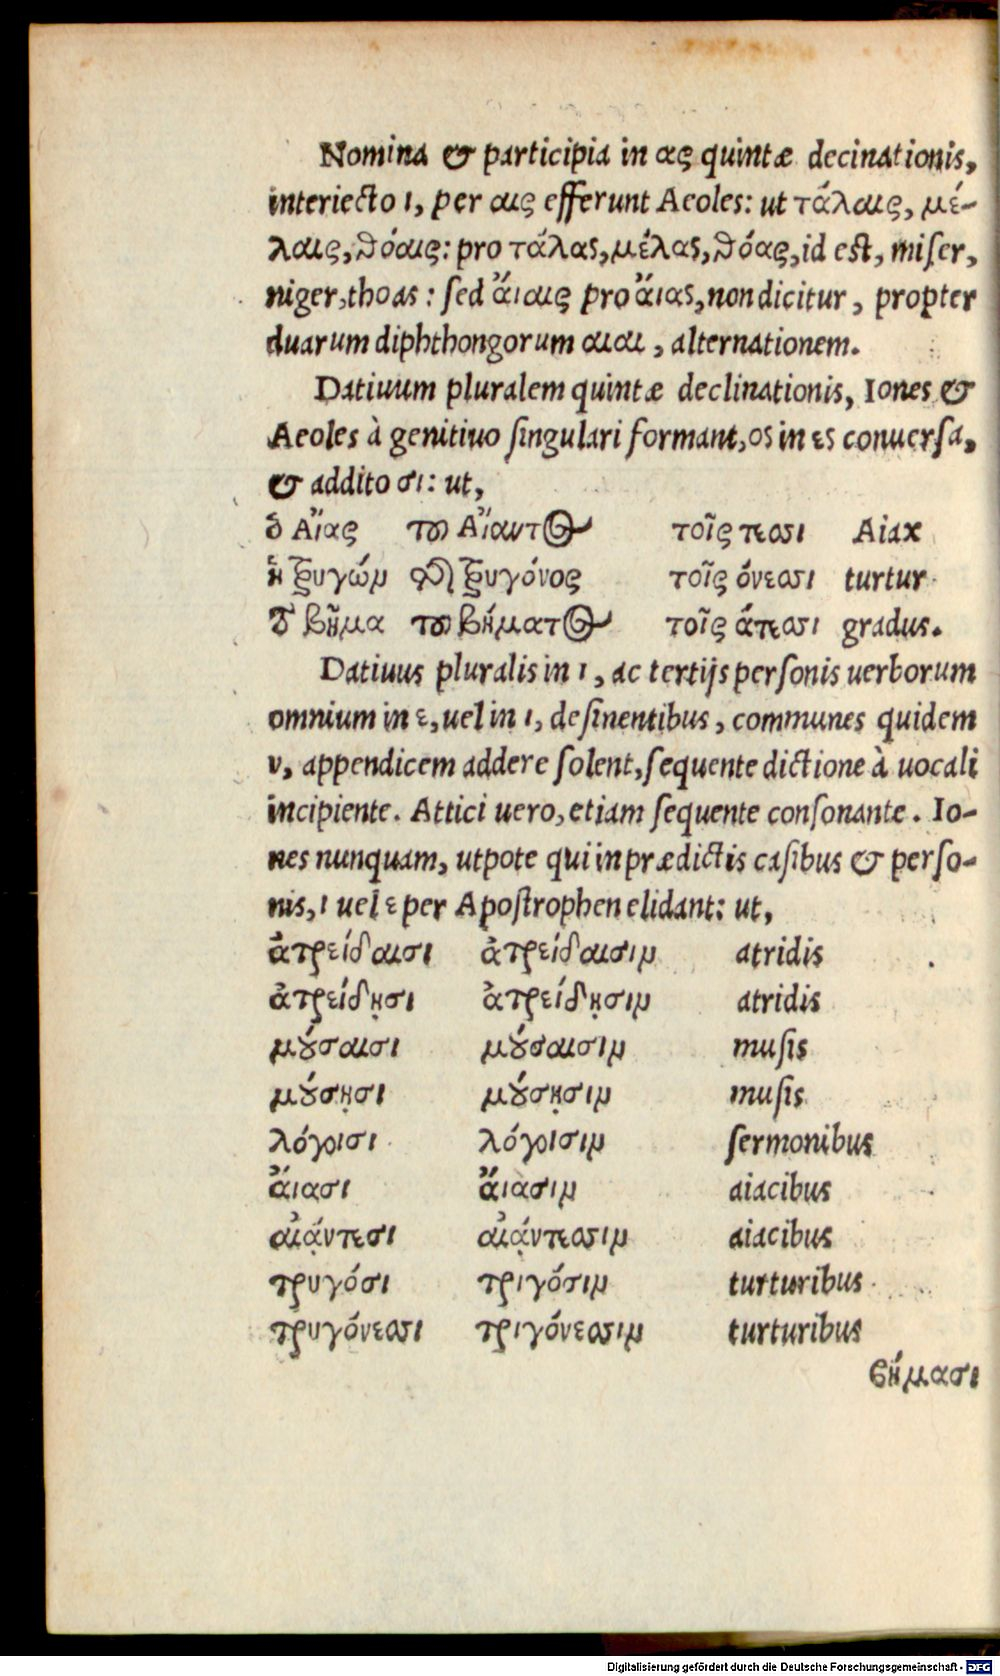 Nomina & participia in ας quintæ decinationis,
interiecto ι, per αις efferunt Aeoles: ut τάλαις, μέ-
λαις, θόαις: pro τάλας, μέλας, θόας, id est, miser,
niger, thoas: sed ἄιαις pro ἄιας, non dicitur, propter
duarum diphthongorum αιαι, alternationem.
Datiuum pluralem quintæ declinationis, Iones &
Aeoles à genitiuo singulari formant, ος in ες conuersa,
& addito σι: ut,
ὁ Αἴας τοῦ Αἴαντος τοῖς τεσι Aiax
ἡ τρυγών τῆς τρυγόνος τοῖς όνεσι turtur
τὸ βῆμα τοῦ βήματος τοῖς άτεσι gradus.
Datiuus pluralis in ι, ac tertijs personis uerborum
omnium in ε, uel in ι, desinentibus, communes quidem
ν, appendicem addere solent, sequente dictione à uocali
incipiente. Attici uero, etiam sequente consonante. Io-
nes nunquam, utpote qui in prædictis casibus & perso-
nis, ι uel ε per Apostrophen elidant: ut,
ἀτρείδαισι ἀτρείδαισιν atridis
ἀτρείδῃσι ἀτρείδῃσιν atridis
μούσαισι μούσαισιν musis
μούσῃσι μούσῃσιν musis
λόγοισι λόγοισιν sermonibus
ἄιασι ἄιασιν aiacibus
αἰάντεσι αἰάντεσιν aiacibus
τρυγόσι τριγόσιν turturibus
τρυγόνεσι τριγόνεσιν turturibus
βήμασι
Digitalisierung gefördert durch die Deutsche Forschungsgemeinschaft - DFG